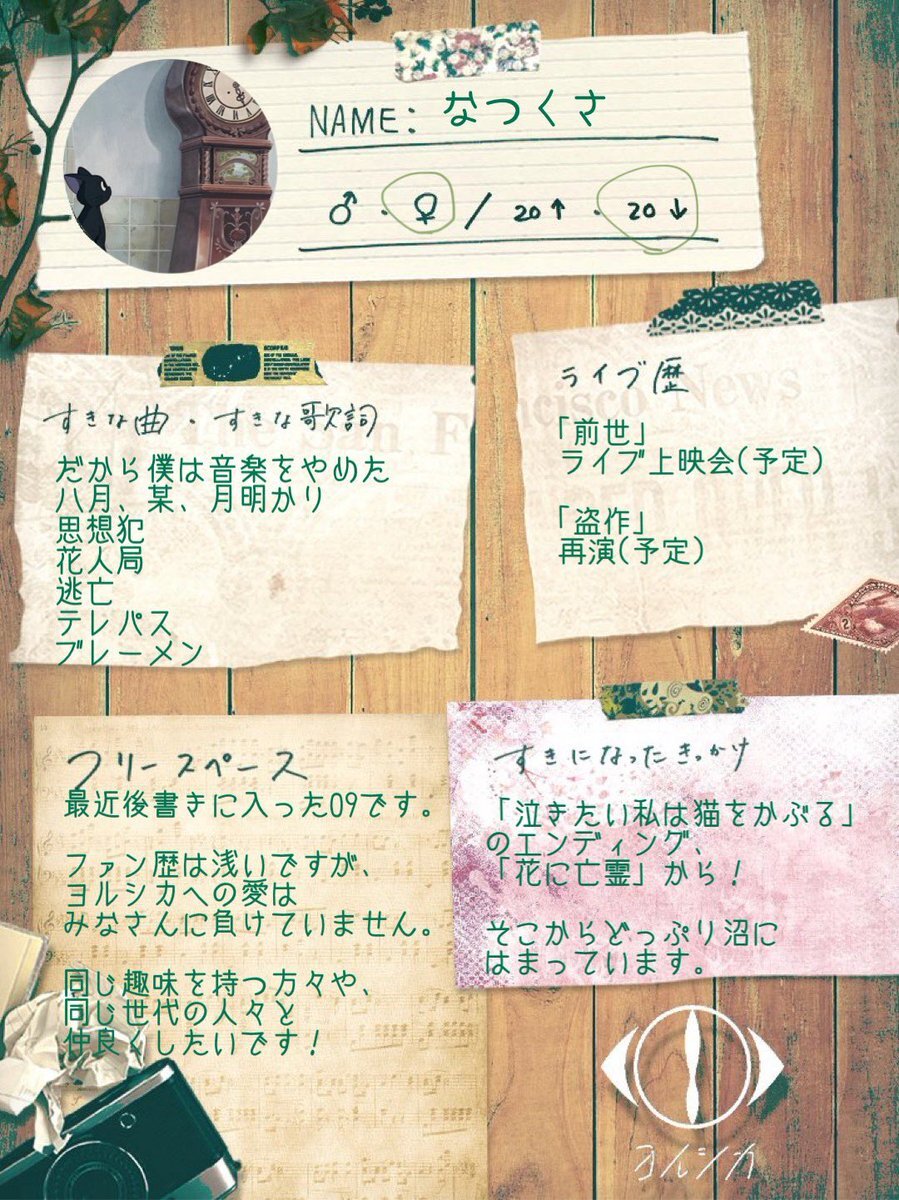 NAME: なつくさ
♂・♀ / 20↑・20↓
すきな曲・すきな歌詞
だから僕は音楽をやめた
八月、某、月明かり
思想犯
花人局
逃亡
テレパス
ブレーメン
ライブ歴
「前世」
ライブ上映会(予定)
「盗作」
再演(予定)
フリースペース
最近後書きに入った09です。
ファン歴は浅いですが、
ヨルシカへの愛は
みなさんに負けていません。
同じ趣味を持つ方々や、
同じ世代の人々と
仲良くしたいです!
すきになったきっかけ
「泣きたい私は猫をかぶる」
のエンディング、
「花に亡霊」から!
そこからどっぷり沼に
はまっています。
ヨルシカ